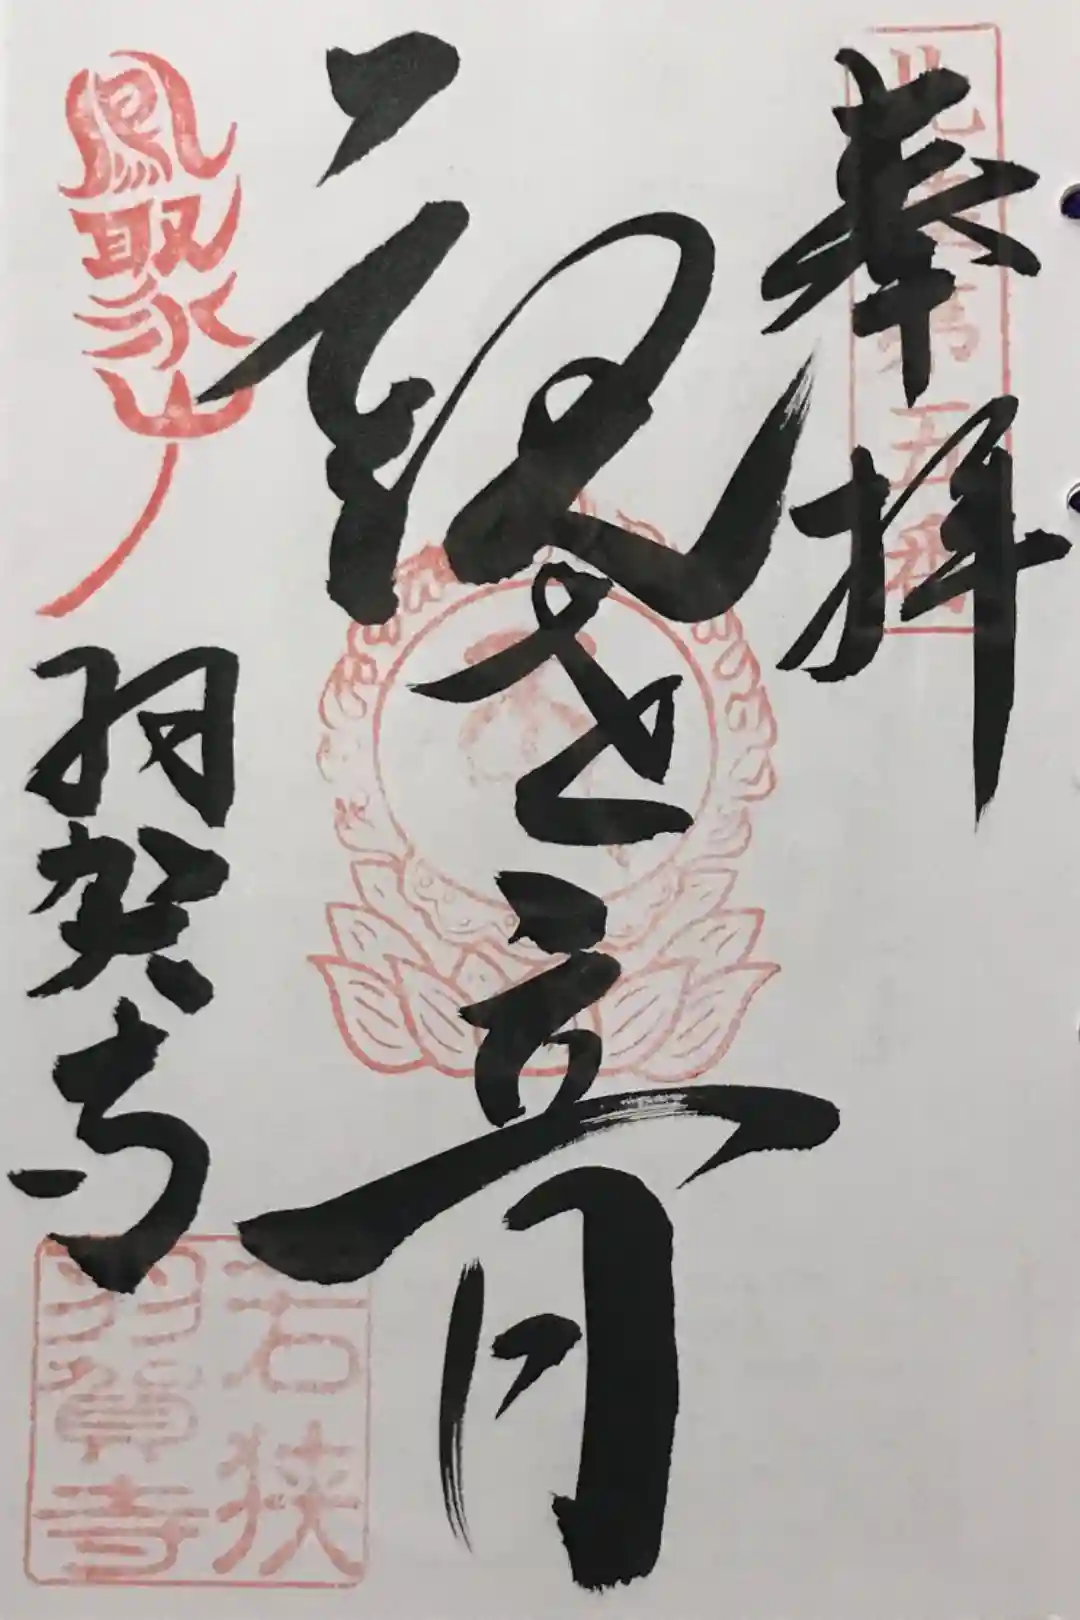 奉拝
北陸第五番
観世音
鳳聚山
羽賀寺
若狭
羽賀寺